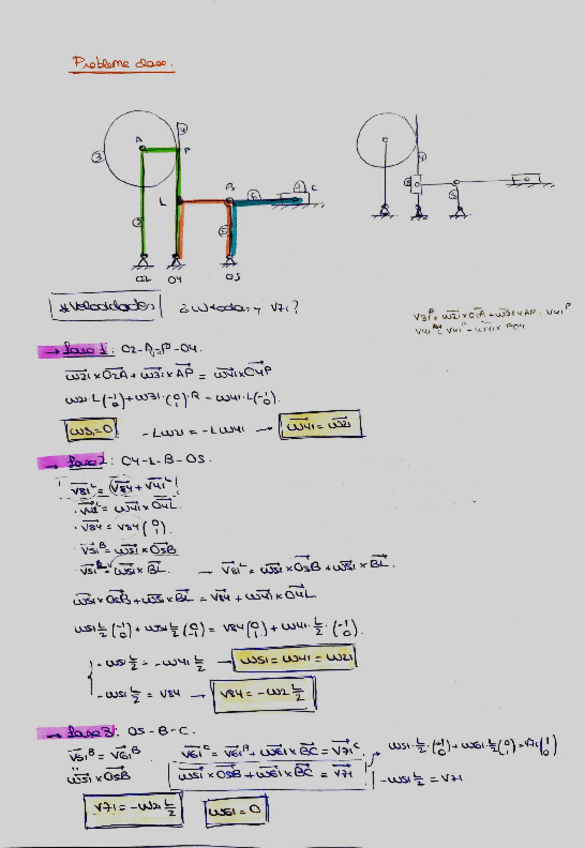 Problema clase.
3
4
A
P
2
L
B
6
7
C
5
O2
O4
O5
4
8
5
* Velocidades
¿ω todas y V71?
V3^P = ω21×O2A + ω31×AP = V41^P
→ Lazo 1: O2-A-P-O4.
ω21×O2A + ω31×AP = ω41×O4P
ω21·L(-1 0) + ω31·(0 1)·R = ω41·L(-1 0).
ω31=0
-Lω21 = -Lω41 → ω41 = ω21
→ Lazo 2: O4-L-B-O5.
V81^L = V84 + V41^L
· V41^L = ω41×O4L
· V84 = V84 (0 1).
· V51^B = ω51×O5B
→ V81^L = ω51×O5B + ω51×BL.
ω51×O5B + ω51×BL = V84 + ω41×O4L
ω51 L/2 (-1 0) + ω51 L/2 (0 -1) = V84 (0 1) + ω41· L/2 · (-1 0).
-ω51 L/2 = -ω41 L/2 → ω51 = ω41 = ω21
-ω51 L/2 = V84 → V84 = -ω2 L/2
→ Lazo 3: O5-B-C.
V51^B = V61^B
V61^C = V61^B + ω61×BC = V71^C
ω51·L/2·(-1 0) + ω61·L/2 (0 1) = V71 (1 0)
ω51×O5B
ω51×O5B + ω61×BC = V71
-ω51 L/2 = V71
V71 = -ω21 L/2
ω61 = 0